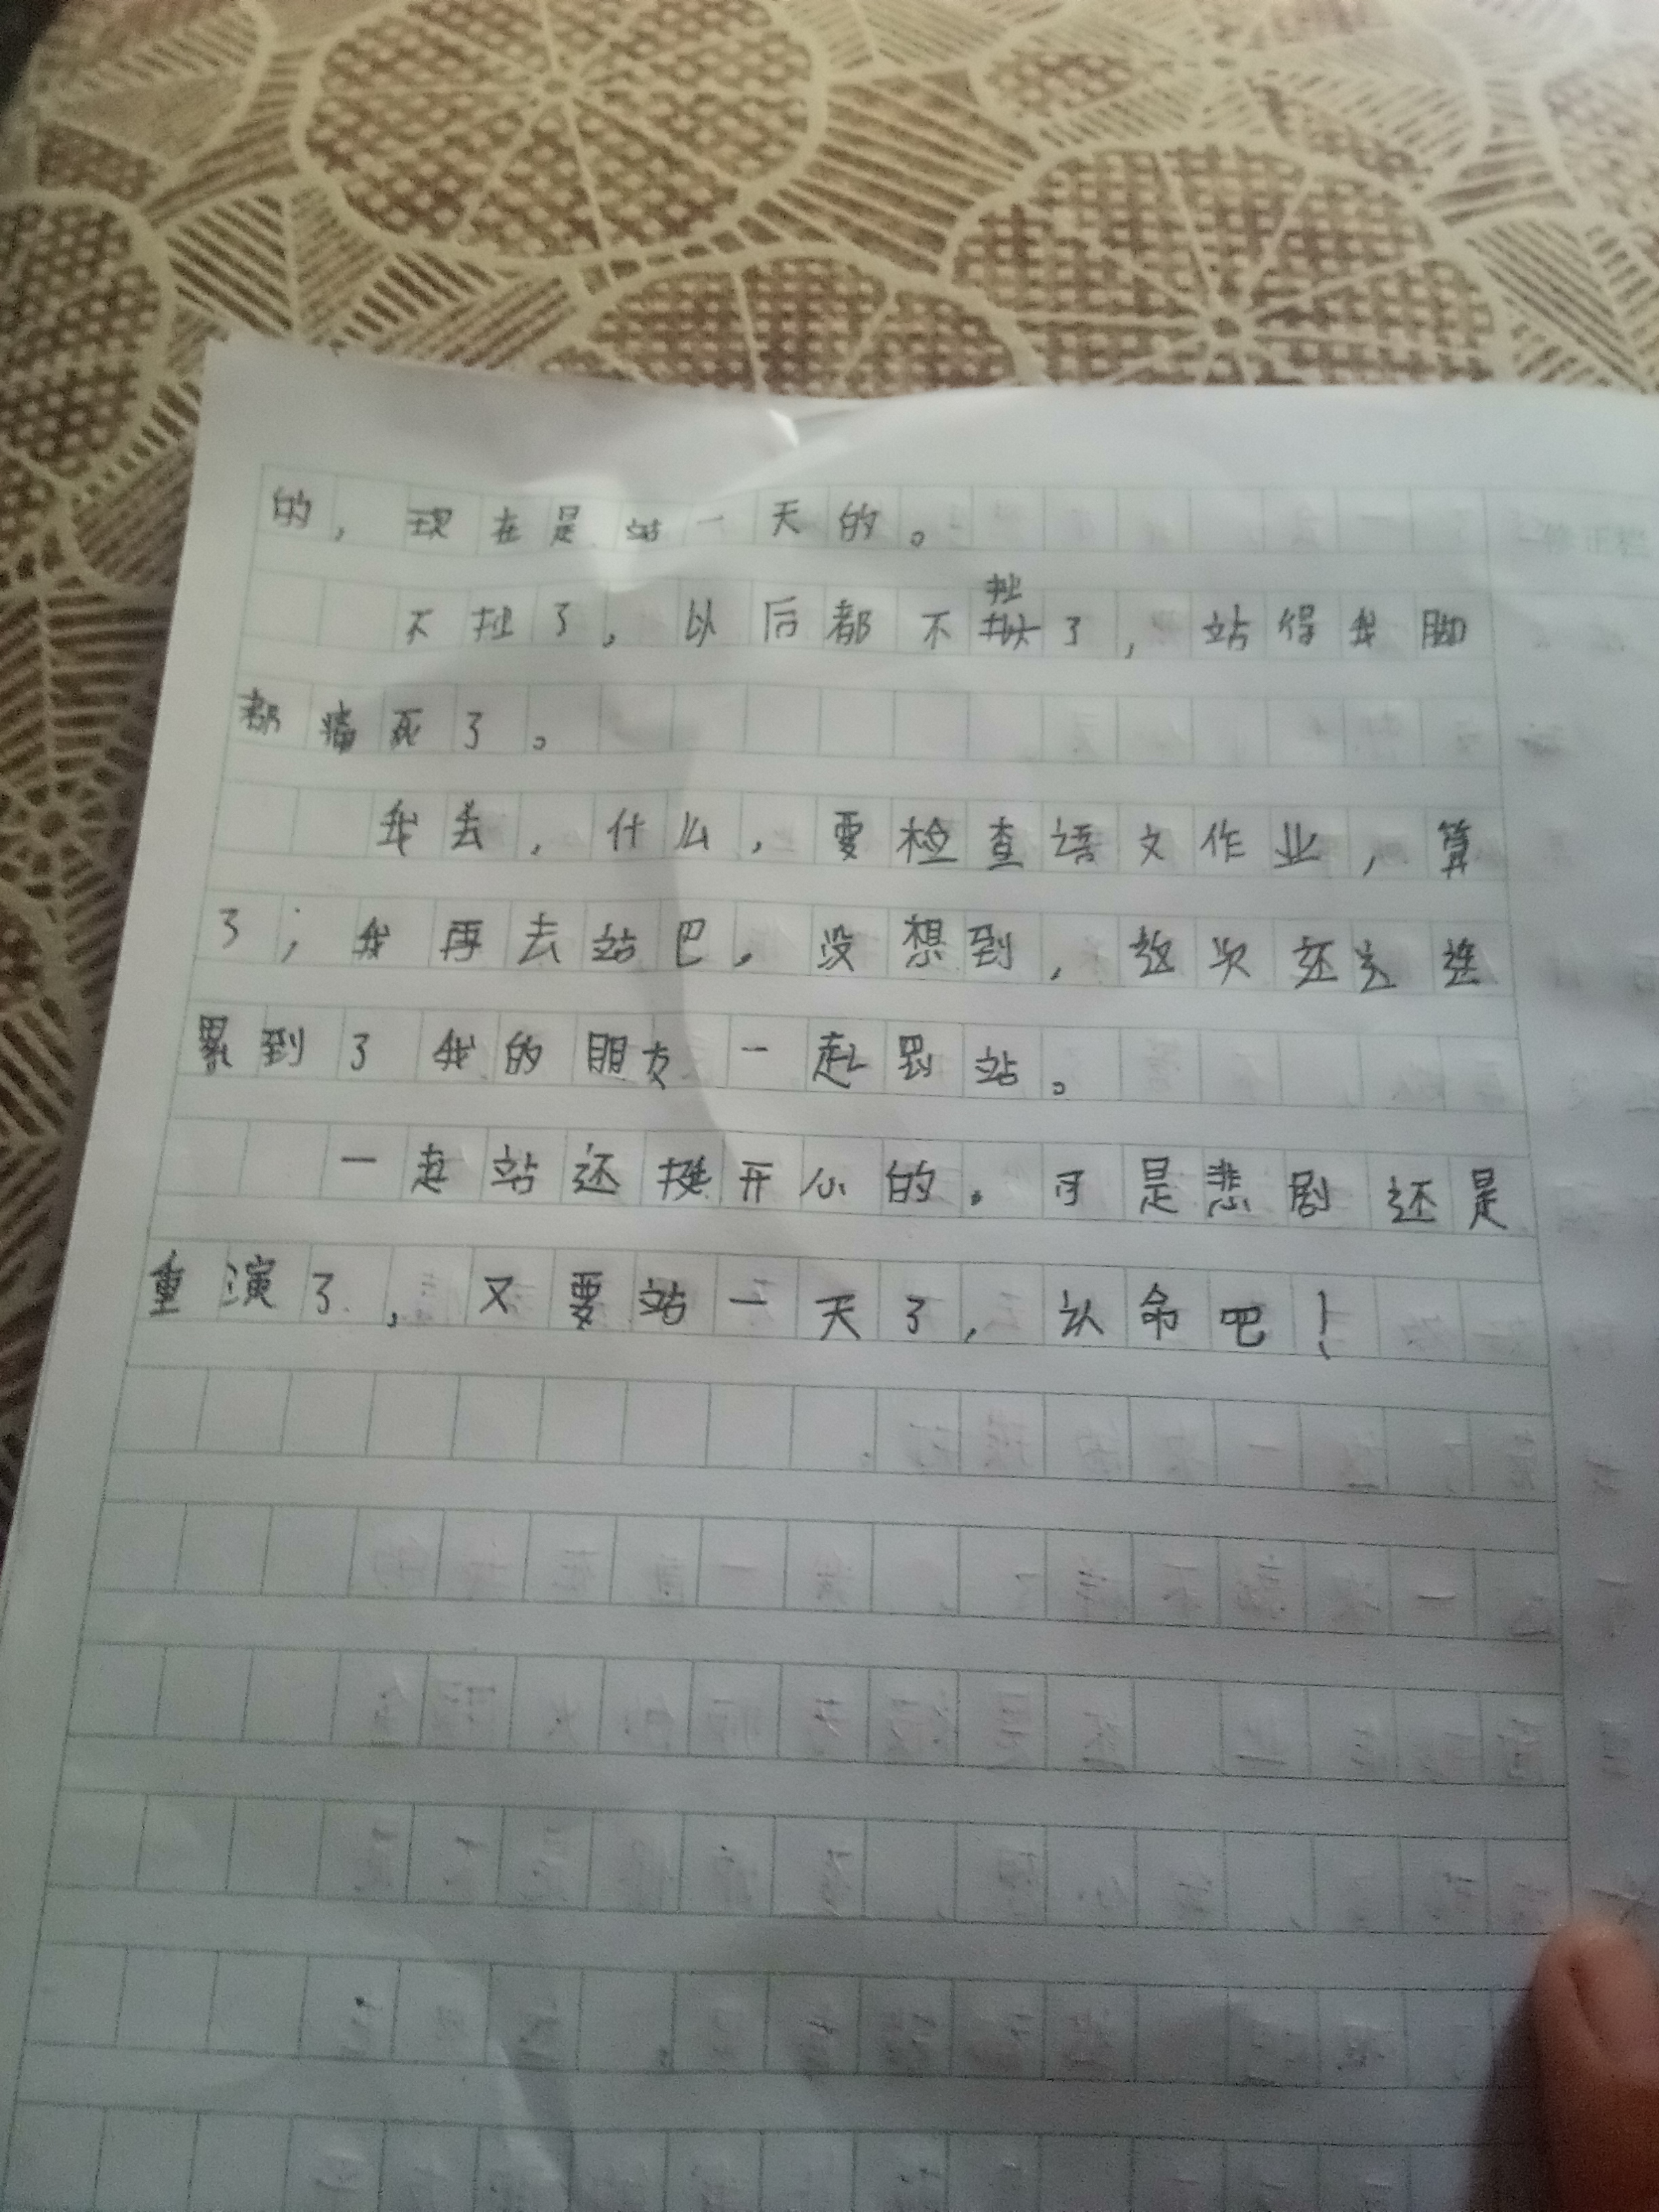 的，现在是站一天的。
不扯了，以后都不扯了，站得我脚
都痛死了。
我去，什么，要检查语文作业，算
了；我再去站吧，没想到，这次还连
累到了我的朋友一起罚站。
一起站还挺开心的。可是悲剧还是
重演了，又要站一天了，认命吧！
修正栏